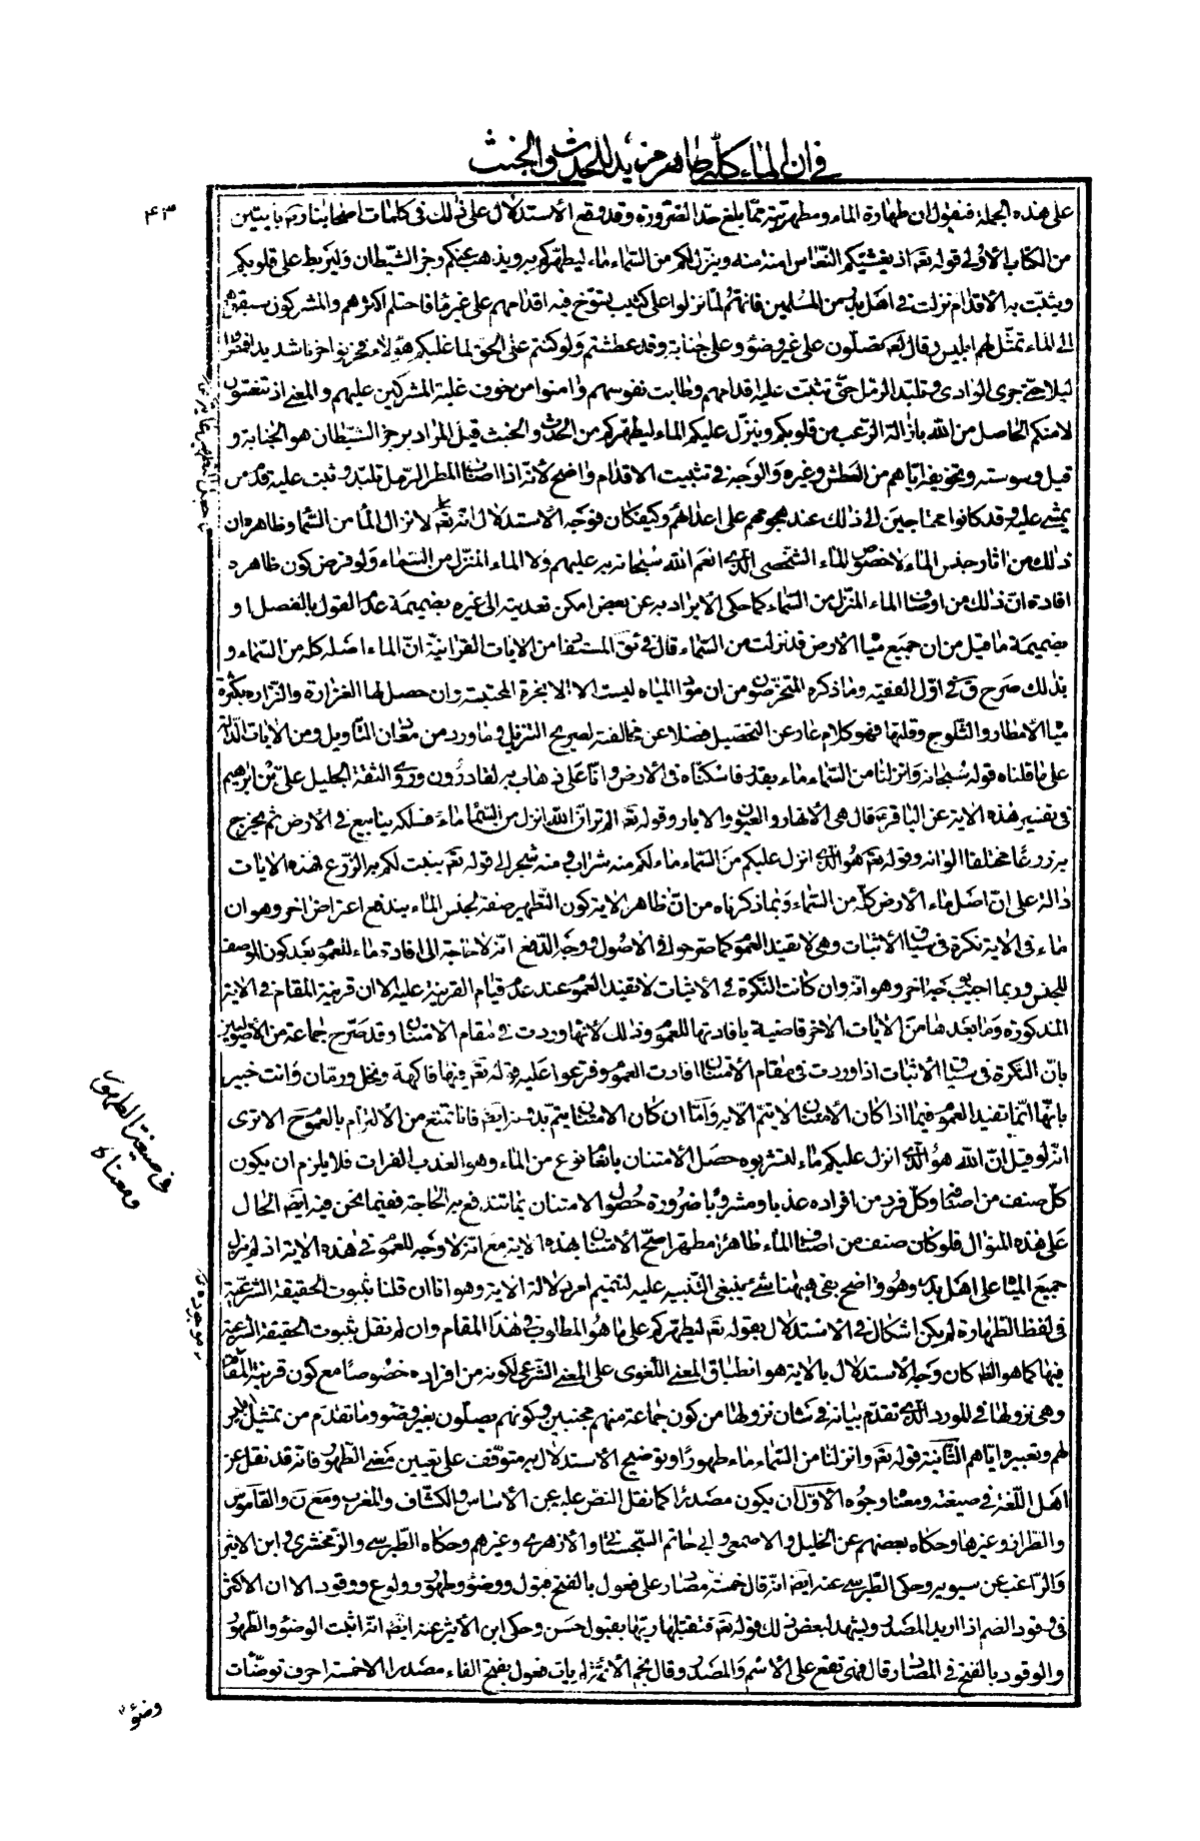 في ان الماء كله طاهر مزيد للحدث والخبث
٤٣
على هذه الجملة فنقول ان طهارة الماء ومطهريته مما بلغ حد الضرورة وقد وقع الاستدلال على ذلك في كلمات اصحابنا ره بايتين
من الكتاب الأولى قوله تعم اذ يغشيكم النعاس امنة منه وينزل لكم من السماء ماء ليطهركم به ويذهب عنكم رجز الشيطان وليربط على قلوبكم
ويثبت به الأقدام نزلت في اهل بدر من المسلمين فانهم لما نزلوا على كثيب تسوخ فيه اقدامهم على غير ماء فاحتلم اكثرهم والمشركون سبقوهم
الى الماء تمثل لهم ابليس وقال لهم تصلون على غير وضوء وعلى جنابة وقد عطشتم ولو كنتم على الحق لما غلبكم هؤلاء فحزنوا حزنا شديدا فمطروا
ليلا حتى جرى الوادى وتلبد الرمل حتى تثبت عليه اقدامهم وطابت نفوسهم وامنوا من خوف غلبة المشركين عليهم والمعنى اذ تنعسون
لامنكم الحاصل من الله بازالة الرعب من قلوبكم وينزل عليكم الماء ليطهركم من الحدث والخبث قيل المراد برجز الشيطان هو الجنابة و
قيل وسوسته وتخويفه اياهم من العطش وغيره والوجه في تثبيت الاقدام واضح لانه اذا اصاب المطر الرمل تلبد وثبت عليه قدم من
يمشى عليه وقد كانوا محتاجين الى ذلك عند هجومهم على اعدائهم وكيف كان فوجه الاستدلال انه تعم لانزال الماء من السماء وظاهره ان
ذلك من اثار جنس الماء لا خصوص الماء الشخصى الذى انعم الله سبحانه به عليهم ولا الماء المنزل من السماء ولو فرض كون ظاهره
افادة ان ذلك من اوصاف الماء المنزل من السماء كما حكى الايراد به عن بعض امكن تعديته الى غيره بضميمة عدم القول بالفصل او
بضميمة ما قيل من ان جميع مياه الأرض قد نزلت من السماء قال في ئق المستفاد من الايات القرانية ان الماء اصله كله من السماء و
بذلك صرح ق في اول الفقيه وما ذكره المتخرصون من ان مواد المياه ليست الا الابخرة المحتبسة وان حصل لها الغزارة والنزارة بكثرة
مياه الأمطار والثلوج وقلتها فهو كلام عار عن التحصيل فضلا عن مخالفته لصريح التنزيل وما ورد من معادن التاويل ومن الايات الدالة
على ما قلناه قوله سبحانه وانزلنا من السماء ماء بقدر فاسكناه في الارض وانا على ذهاب به لقادرون وروى الثقة الجليل على بن ابرهيم
في تفسير هذه الاية عن الباقر ع قال هى الأنهار والعيون والابار وقوله تعم الم تر ان الله انزل من السماء ماء فسلكه ينابيع في الأرض ثم يخرج
به زرعا مختلفا الوانه وقوله تعم هو الذى انزل عليكم من السماء ماء لكم منه شراب ومنه شجر الى قوله تعم ينبت لكم به الزرع فهذه الايات
دالة على ان اصل ماء الأرض كله من السماء وبما ذكرناه من ان ظاهر الاية كون التطهير صفة لجنس الماء يندفع اعتراض اخر وهو ان
ماء في الاية نكرة في سياق الاثبات وهى لا تفيد العموم كما صرحوا به في الاصول ووجه الدفع انه لا حاجة الى افادة ماء للعموم بعد كون الوصف
للجنس وربما اجيب بوجه اخر وهو انه وان كانت النكرة في الأثبات لا تفيد العموم عند عدم قيام القرينة عليه الا ان قرينة المقام في الاية
المذكورة وما بعدها من الايات الاخر قاضية بافادتها للعموم وذلك لأنها وردت في مقام الامتنان وقد صرح جماعة من الأصوليين
بان النكرة في سياق الأثبات اذا وردت في مقام الأمتنان افادت العموم وفرعوا عليه قوله تعم فيها فاكهة ونخل ورمان وانت خبير
بانها انما تفيد العموم فيما اذا كان الأمتنان لا يتم الا به واما ان كان الامتنان يتم بدونه ايضا فانا نمنع من الالتزام بالعموم ح الا ترى
انه لو قيل ان الله هو الذى انزل عليكم ماء لتشربوه حصل الأمتنان بانعام نوع من الماء وهو العذب الفرات فلا يلزم ان يكون
كل صنف من اصنافه وكل فرد من افراده عذبا ومشروبا ضرورة حصول الامتنان بما تندفع به الحاجة ففيما نحن فيه ايضا الحال
على هذه المنوال فلو كان صنف من اصناف الماء طاهرا مطهرا صح الأمتنان بهذه الاية مع انه لا وجه للعموم في هذه الاية اذ لم ينزل
جميع المياه على اهل بدر وهو واضح بقى هيهنا شئ ينبغى التنبيه عليه لتتميم امر دلالة الاية وهو انا ان قلنا بثبوت الحقيقة الشرعية
في لفظ الطهارة لم يكن اشكال في الاستدلال بقوله تعم ليطهركم على ما هو المطلوب في هذا المقام وان لم نقل بثبوت الحقيقة الشرعية
فيها كما هو الظ كان وجه الاستدلال بالاية هو انطباق المعنى اللغوى على المعنى الشرعى لكونه من افراده خصوصا مع كون قرينة المقام
وهى نزولها في المورد الذى تقدم بيانه في شان نزولها من كون جماعة منهم مجنبين وكونهم يصلون بغير وضوء وما تقدم من تمثيل ابليس
لهم وتعييره اياهم الثانية قوله تعم وانزلنا من السماء ماء طهورا وتوضيح الاستدلال به متوقف على تعيين معنى الطهور فانه قد نقل عن
اهل اللغة في صيغته ومعناه وجوه الأول ان يكون مصدرا كما نقل النص عليه عن الأساس والكشاف والمغرب ومغرن والقاموس
والطراز وغيرها وحكاه بعضهم عن الخليل والاصمعى وابى حاتم السجستانى والازهرى وغيرهم وحكاه الطبرسى والزمخشرى وابن الاثير
والراغب عن سيبويه وحكى الطبرسى عنه ايضا انه قال خمسة مصادر على فعول بالفتح قبول ووضوء وطهور وولوع ووقود الا ان الاكثر
في وقود الضم اذا اريد المصدر ويشهد لبعض ذلك قوله تعم فتقبلها ربها بقبول حسن وحكى ابن الأثير عنه ايضا انه اثبت الوضوء والطهور
والوقود بالفتح في المصادر قال فهى تقع على الاسم والمصدر وقال نجم الأئمة لم يات فعول بفتح الفاء مصدرا الا خمسة احرف توضات
في صيغة الطهور
ومعناه
وضوء